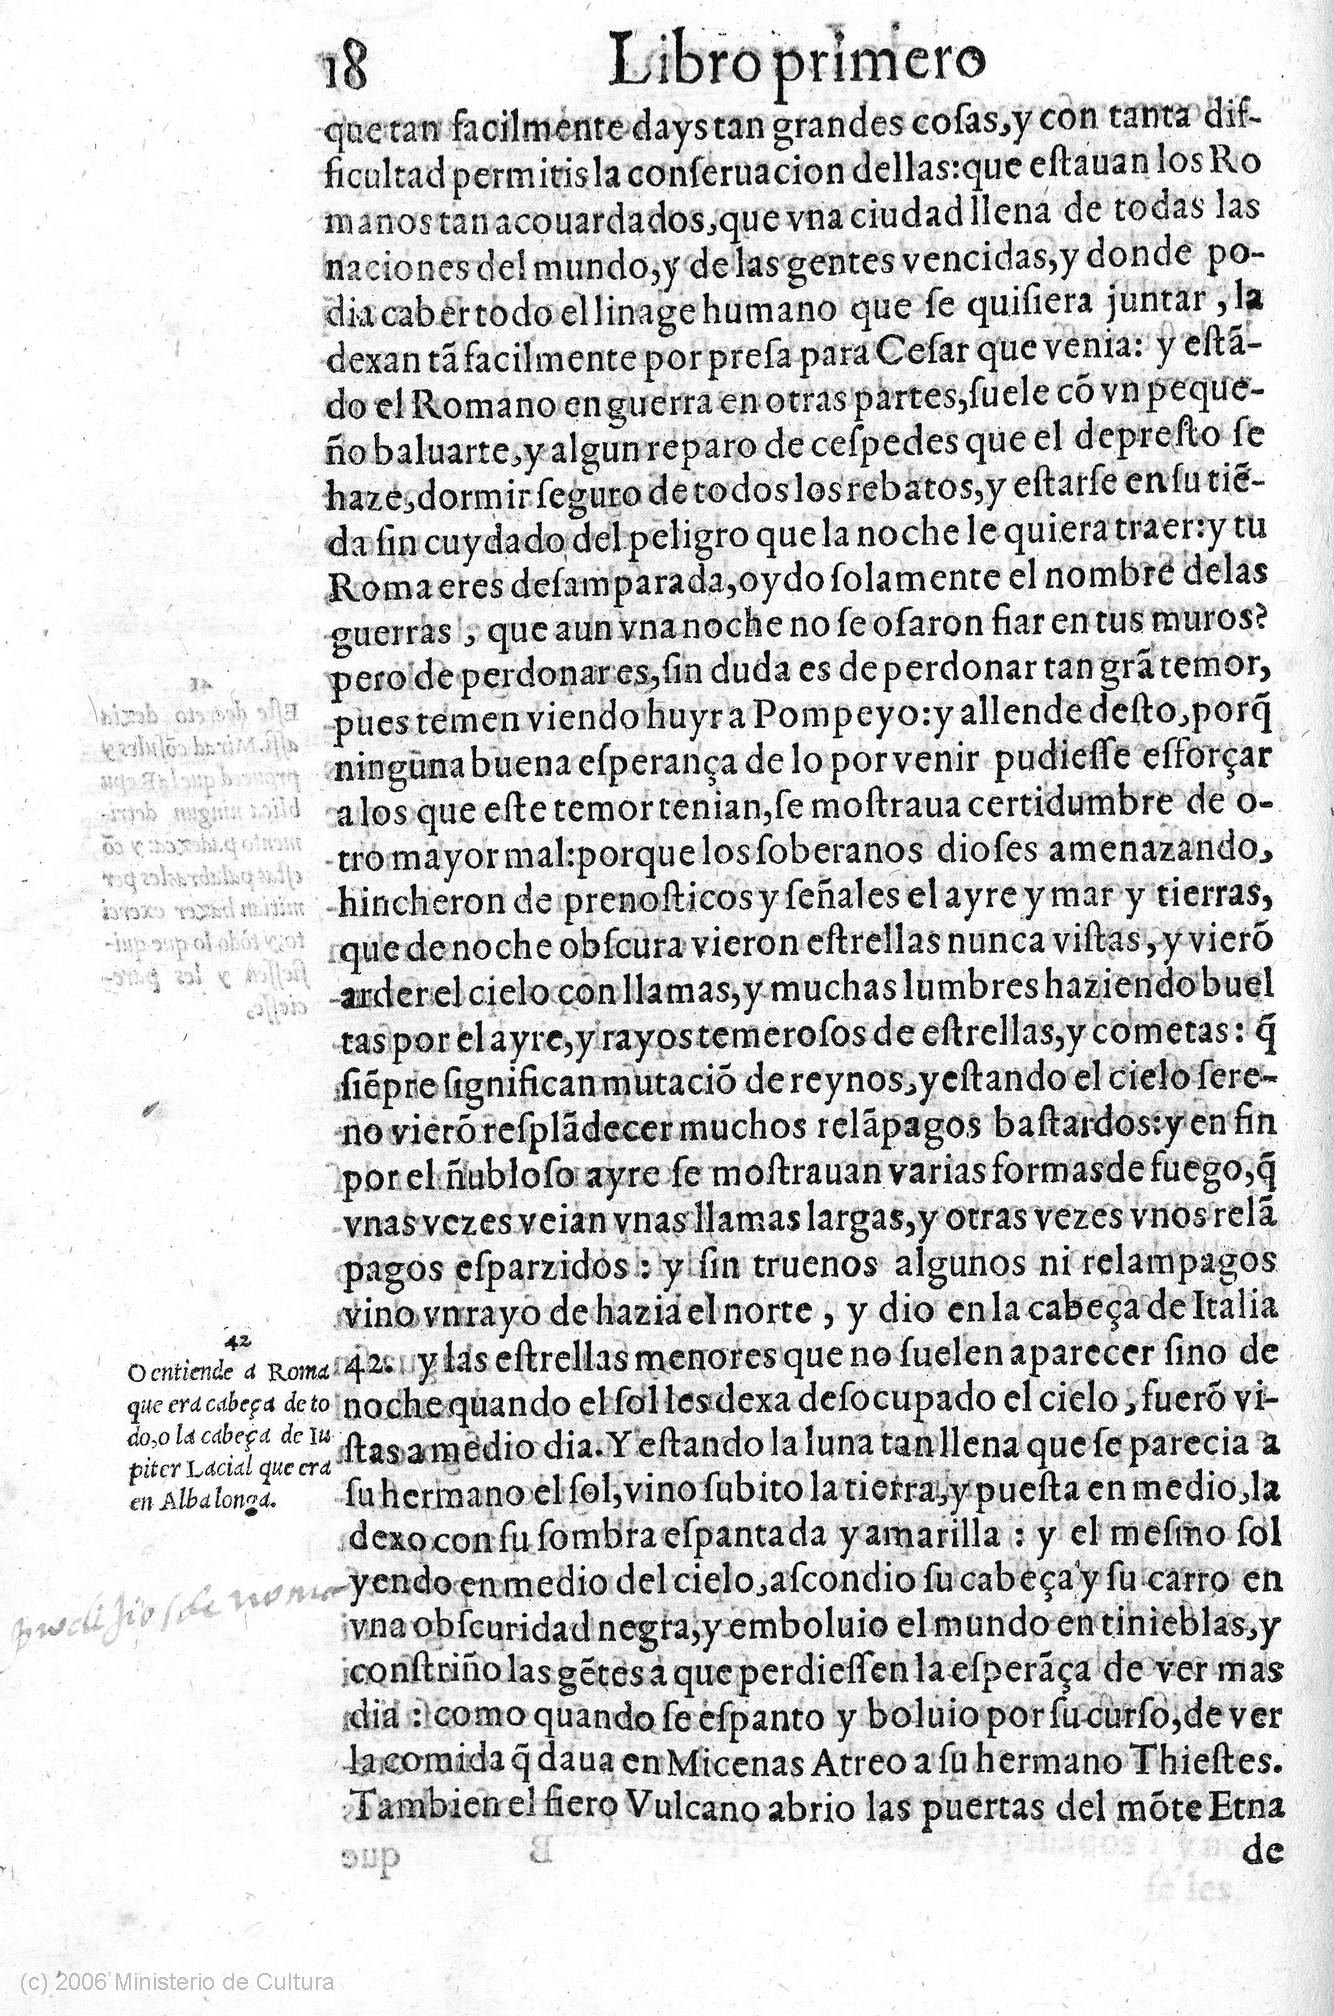 18 Libro primero
que tan facilmente days tan grandes cosas, y con tanta dif-
ficultad permitis la conseruacion dellas: que estauan los Ro
manos tan acouardados, que vna ciudad llena de todas las
naciones del mundo, y de las gentes vencidas, y donde po-
dia caber todo el linage humano que se quisiera juntar, la
dexan tã facilmente por presa para Cesar que venia: y estã-
do el Romano en guerra en otras partes, suele cõ vn peque-
ño baluarte, y algun reparo de cespedes que el de presto se
haze, dormir seguro de todos los rebatos, y estarse en su tiẽ-
da sin cuydado del peligro que la noche le quiera traer: y tu
Roma eres desamparada, oydo solamente el nombre de las
guerras, que aun vna noche no se osaron fiar en tus muros?
pero de perdonar es, sin duda es de perdonar tan grã temor,
pues temen viendo huyr a Pompeyo: y allende desto, porq̃
ninguna buena esperança de lo por venir pudiesse esforçar
a los que este temor tenian, se mostraua certidumbre de o-
tro mayor mal: porque los soberanos dioses amenazando,
hincheron de prenosticos y señales el ayre y mar y tierras,
que de noche obscura vieron estrellas nunca vistas, y vierõ
arder el cielo con llamas, y muchas lumbres haziendo buel
tas por el ayre, y rayos temerosos de estrellas, y cometas: q̃
siẽpre significan mutaciõ de reynos, y estando el cielo sere-
no vierõ resplãdecer muchos relãpagos bastardos: y en fin
por el ñubloso ayre se mostrauan varias formas de fuego, q̃
vnas vezes veian vnas llamas largas, y otras vezes vnos relã
pagos esparzidos: y sin truenos algunos ni relampagos
vino vn rayo de hazia el norte, y dio en la cabeça de Italia
42. y las estrellas menores que no suelen aparecer sino de
noche quando el sol les dexa desocupado el cielo, fuerõ vi-
stas a medio dia. Y estando la luna tan llena que se parecia a
su hermano el sol, vino subito la tierra, y puesta en medio, la
dexo con su sombra espantada y amarilla: y el mesmo sol
yendo en medio del cielo, ascondio su cabeça y su carro en
vna obscuridad negra, y emboluio el mundo en tinieblas, y
constriño las gẽtes a que perdiessen la esperãça de ver mas
dia: como quando se espanto y boluio por su curso, de ver
la comida q̃ daua en Micenas Atreo a su hermano Thiestes.
Tambien el fiero Vulcano abrio las puertas del mõte Etna
de
42
O entiende a Roma
que era cabeça de to
do, o la cabeça de Iu
piter Lacial que era
en Alba longa.
prodijios de roma
(c) 2006 Ministerio de Cultura